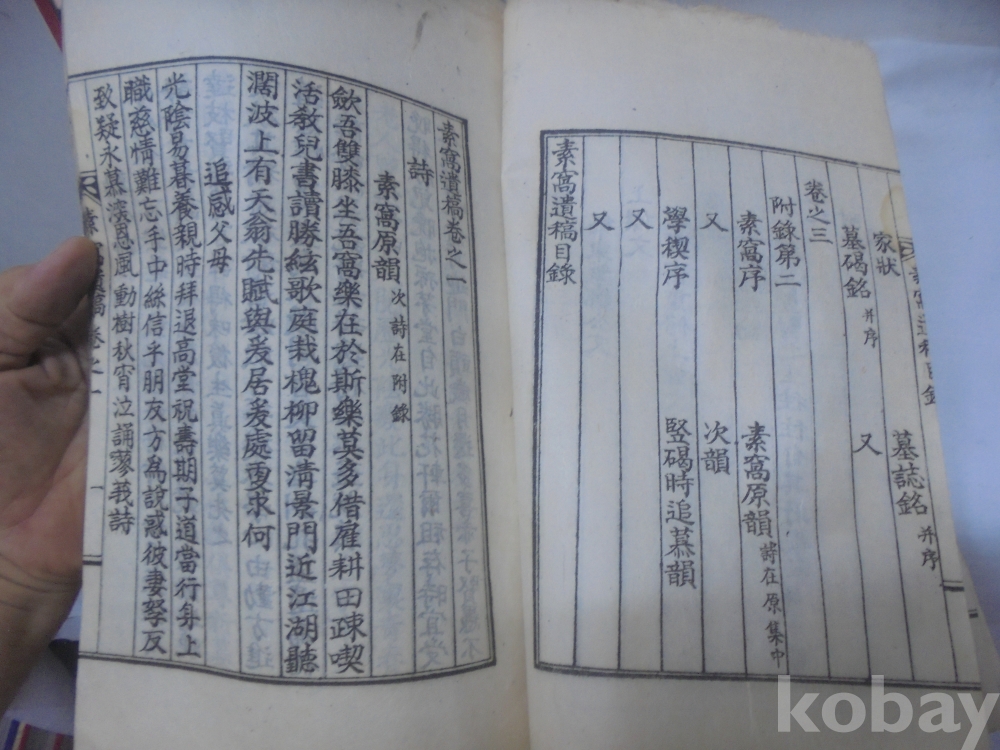 家狀 墓誌銘 并序
墓碣銘 并序 又
卷之三
附錄第二
素窩序 素窩原韻 詩在原集中
又 次韻
學稧序 竪碣時追慕韻
又
又
素窩遺稿目錄
素窩遺稿卷之一
詩
素窩原韻 次詩在附錄
歛吾雙膝坐吾窩樂在於斯樂莫多借雇耕田踈喫
活敎兒書讀勝絃歌庭栽槐柳留淸景門近江湖聽
濶波上有天翁先賦與爰居爰處更求何
追感父母
光陰易暮養親時拜退高堂祝壽期子道當行身上
職慈情難忘手中絲信乎朋友方為說惑彼妻孥反
致疑永慕深恩風動樹秋宵泣誦蓼莪詩
kobay